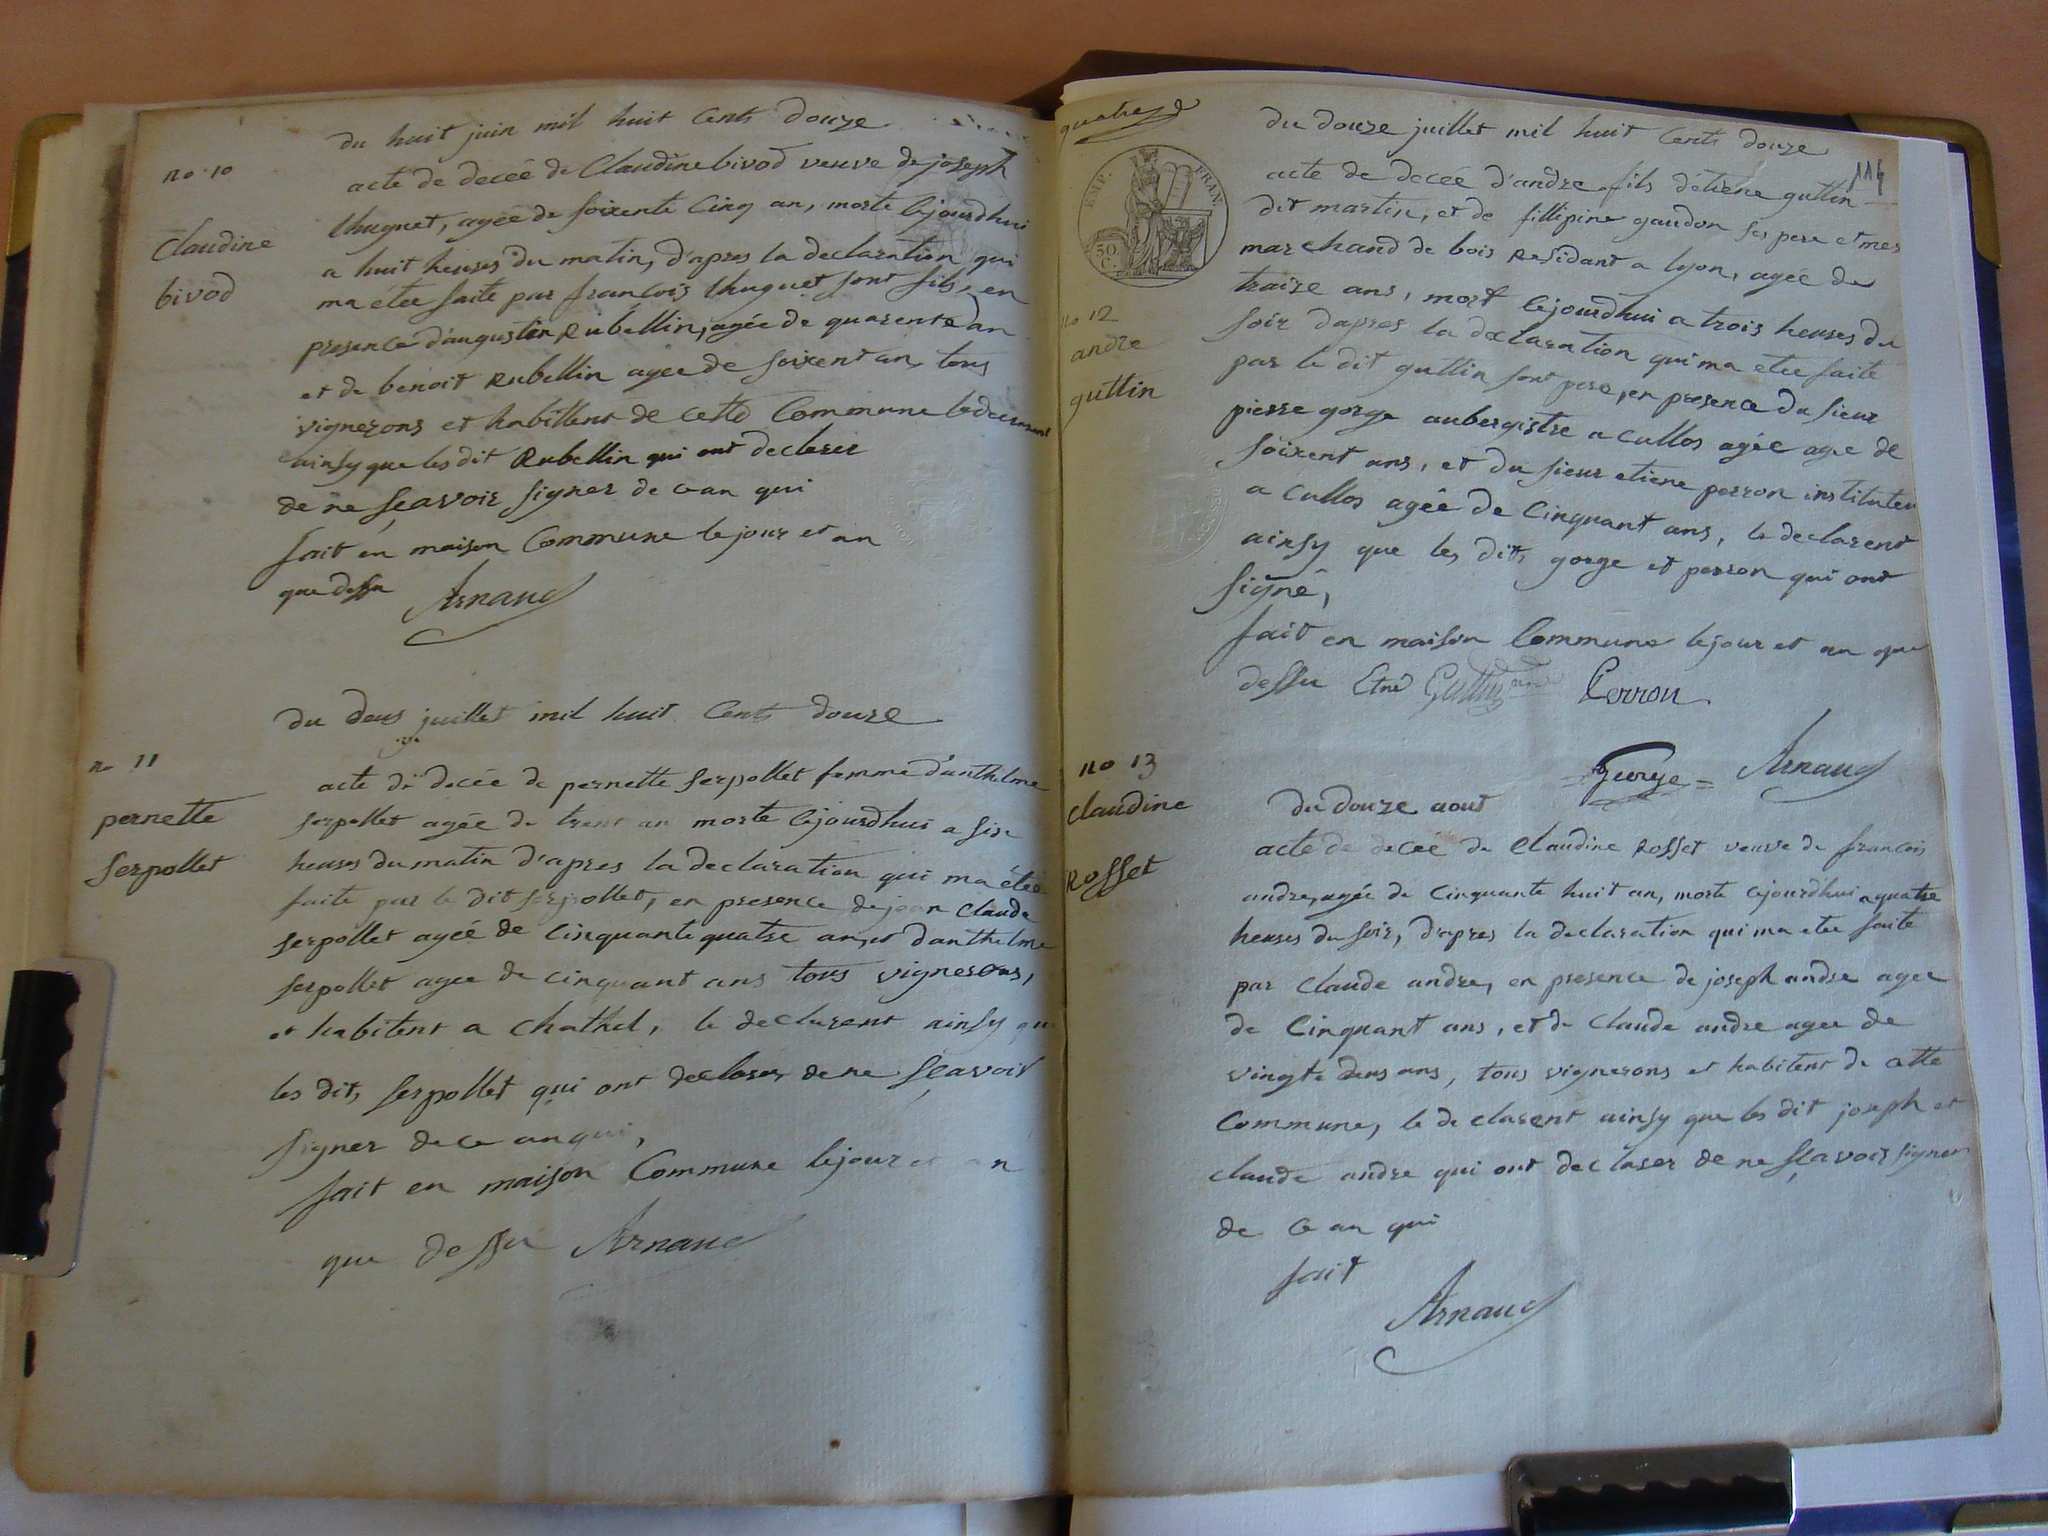 du huit juin mil huit Cents douze
no 10
acte de decée de Claudine bivod veuve de joseph
thuguet, agée de soixente Cinq an, morte cejourdhui
Claudine
a huit heuses du matin, d'apres la declaration qui
bivod
ma étée faite par françois thuguet sont fils, en
presence d'augustin Rubellin, agée de quarente an
et de benoit Rubellin agée de soixent an, tous
vignerons et habittent de cette Commune le declarent
ainsy que les dit Rubellin qui ont declarer
de ne sçavoir signer de ce an qui
fait en maison Commune le jour et an
que dessu Arnaud
du deus juillet mil huit Cents douze
no 11
acte de decée de pernette serpollet femme d'anthelme
pernette
serpollet agée de trent an morte cejourdhui a six
serpollet
heuses du matin d'apres la declaration qui ma étée
faite par le dit serpollet, en presence de jean Claude
serpollet agée de cinquante quatre an, et d'anthelme
serpollet agée de cinquant ans tous vignerons,
et habitent a Chathel, le declarent ainsy que
les dit, serpollet qui ont declarer de ne sçavoir
signer de ce an qui,
fait en maison Commune le jour et an
que dessu Arnaud
quatre
114
EMP. FRAN.
50 C.
du douze juillet mil huit Cents douze
acte de decée d'andre fils d'étiene guttin
dit martin, et de fillipine gaudon ses pere et mes
marchand de bois Residant a lyon, agée de
traize ans, mort cejourdhui a trois heuses du
no 12
soir d'apres la declaration qui ma etee faite
andre
par le dit guttin sont pere, en presence du sieur
guttin
pierre gorge aubergistre a Cullos agée agee de
soixent ans, et du sieur etiene perron instituteu
a Cullos agée de Cinquant ans, le declarent
ainsy que les dits gorge et perron qui ont
signé,
fait en maison Commune le jour et an que
dessu Etne Guttin Perron
George Arnaud
no 13
Claudine
Rosset
du douze aout
acte de decée de Claudine Rosset veuve de françois
andre, agée de Cinquante huit an, morte cejourdhui a quatre
heuses du soir, d'apres la declaration qui ma etee faite
par Claude andre, en presence de joseph andre agee
de Cinquant ans, et de Claude andre agee de
vingte deus ans, tous vignerons et habitent de cette
Commune, le declarent ainsy que les dit joseph et
claude andre qui ont declarer de ne sçavoir signer
de ce an qui
fait
Arnaud